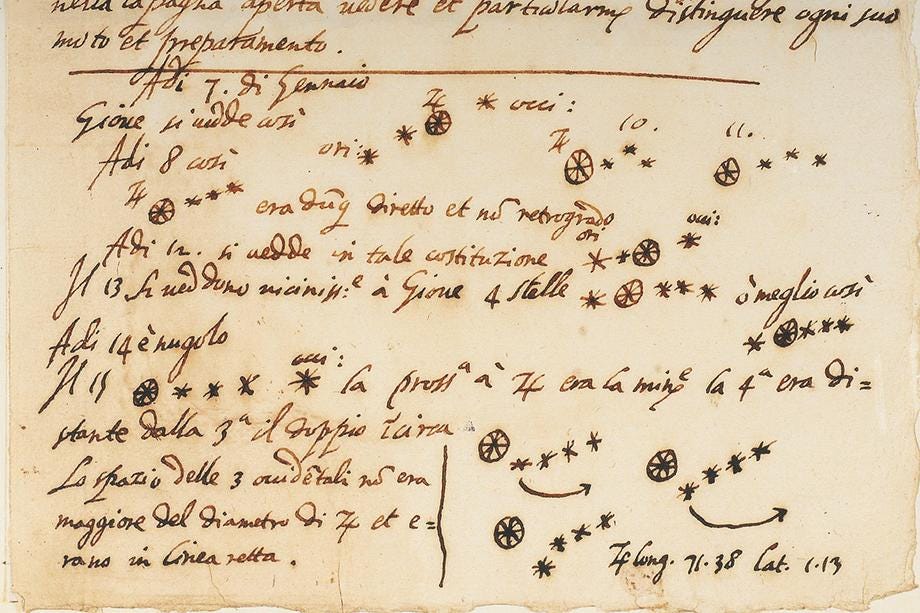 nella capagna aperta vedere et particularmẽ distinguere ogni suo
moto et preparamento.
Adi 7. di Gennaio
Gioue si vedde così
♃ occi:
ori:
♃ 10. 11.
Adi 8 così
♃
era dũq diretto et nõ retrogrado
Adi 12. si vedde in tale costituzione
ori occi:
Il 13 si veddono vicinissᵉ à Gioue 4 stelle
ò meglio così
Adi 14 è nugolo
Il 15
occi:
la prossᵃ à ♃ era la minᵉ la 4ᵃ era di=
stante dalla 3ᵃ il doppio ĩcirca
Lo spazio delle 3 occidẽtali nõ era
maggiore del diametro di ♃ et e=
rano in linea retta.
♃ long. 71.38 lat. 1.13